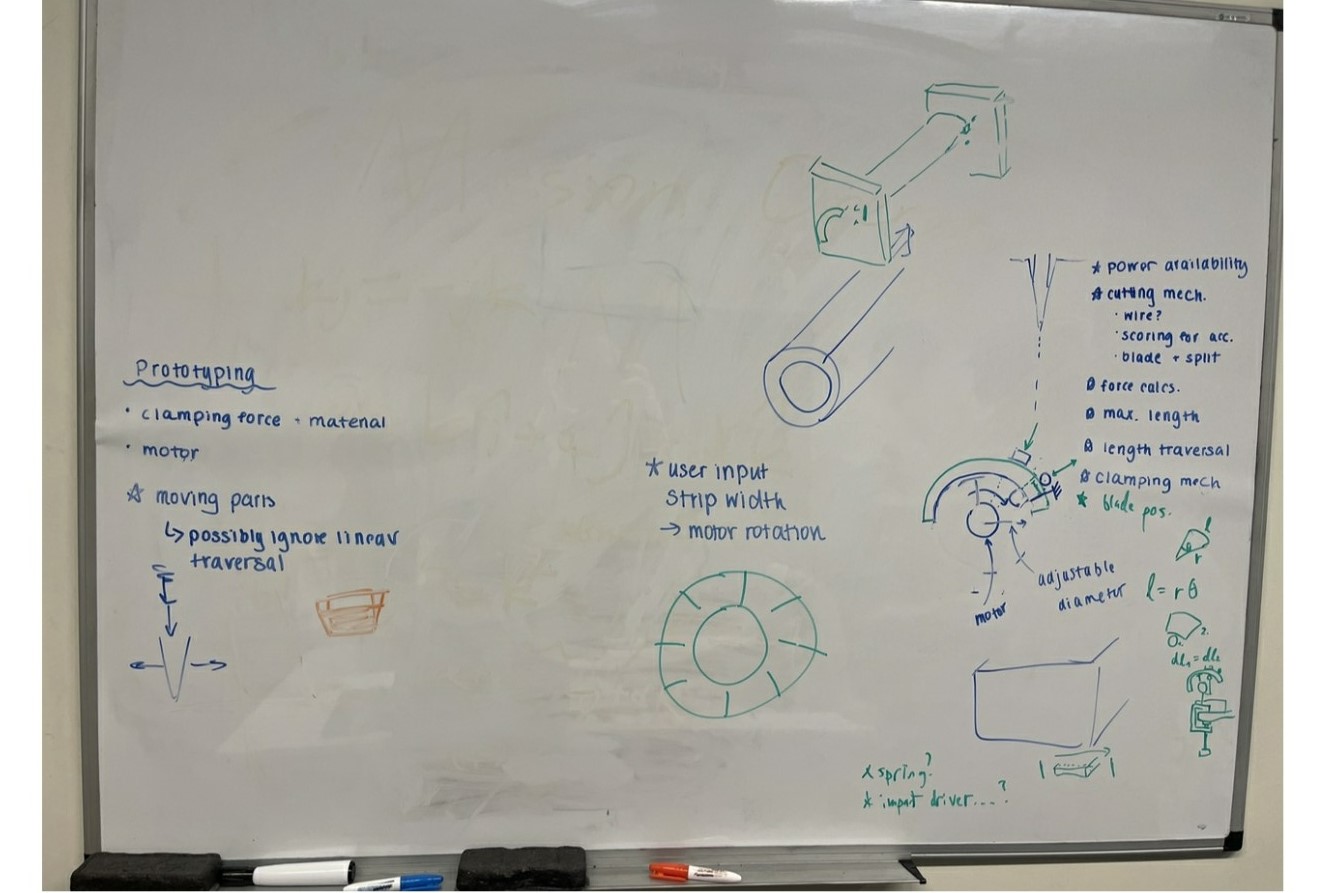 Prototyping
· clamping force + material
· motor
☆ moving parts
↳ possibly ignore linear
traversal
* user input
strip width
→ motor rotation
* power availability
* cutting mech.
· wire?
· scoring for acc.
· blade + split
force calcs.
max. length
length traversal
clamping mech
* blade pos.
l
θ
r
l = rθ
2.
dl₁ = dl₂
adjustable
diameter
motor
* spring?
* impat driver....?